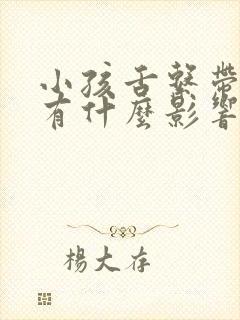 小孩舌繫帶
有什麼影響
楊大存